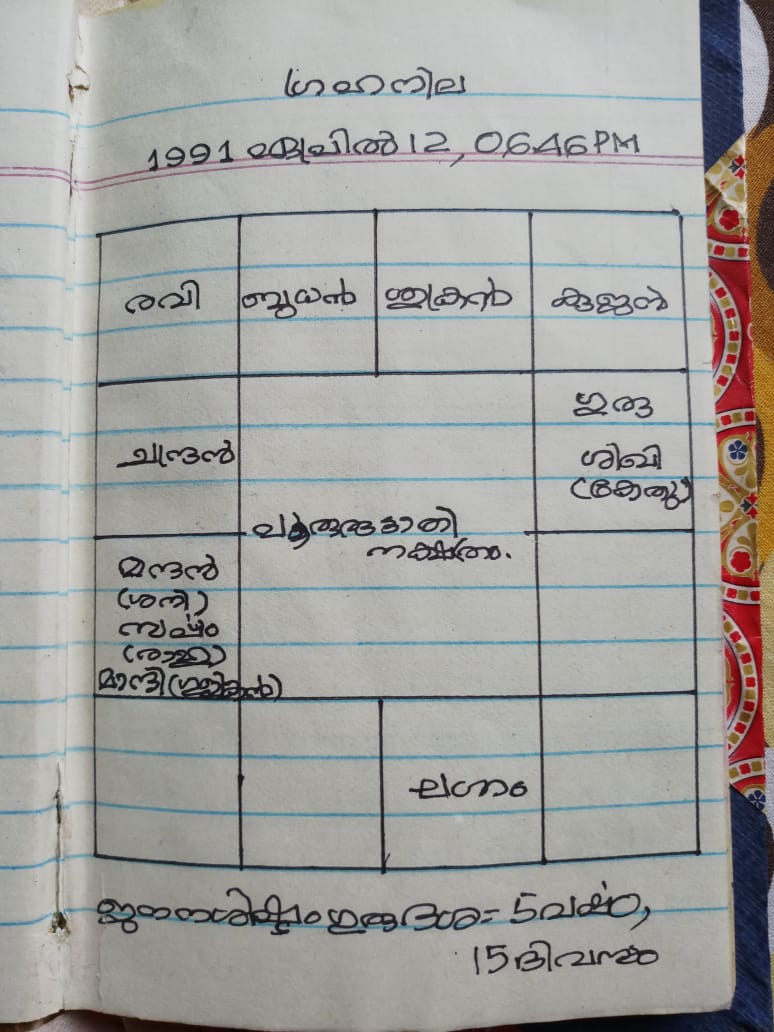 ഗ്രഹനില
1991 ഏപ്രിൽ 12, 06.46 PM
രവി
ബുധൻ
ശുക്രൻ
കുജൻ
ചന്ദ്രൻ
ഗുരു
ശിഖി
(കേതു)
പൂരുരുട്ടാതി
നക്ഷത്രം.
മന്ദൻ
(ശനി)
സർപ്പം
(രാഹു)
മാന്ദി (ഗുളികൻ)
ലഗ്നം
ജനനശിഷ്ടം ഗുരു ദശ = 5 വർഷം,
15 ദിവസം